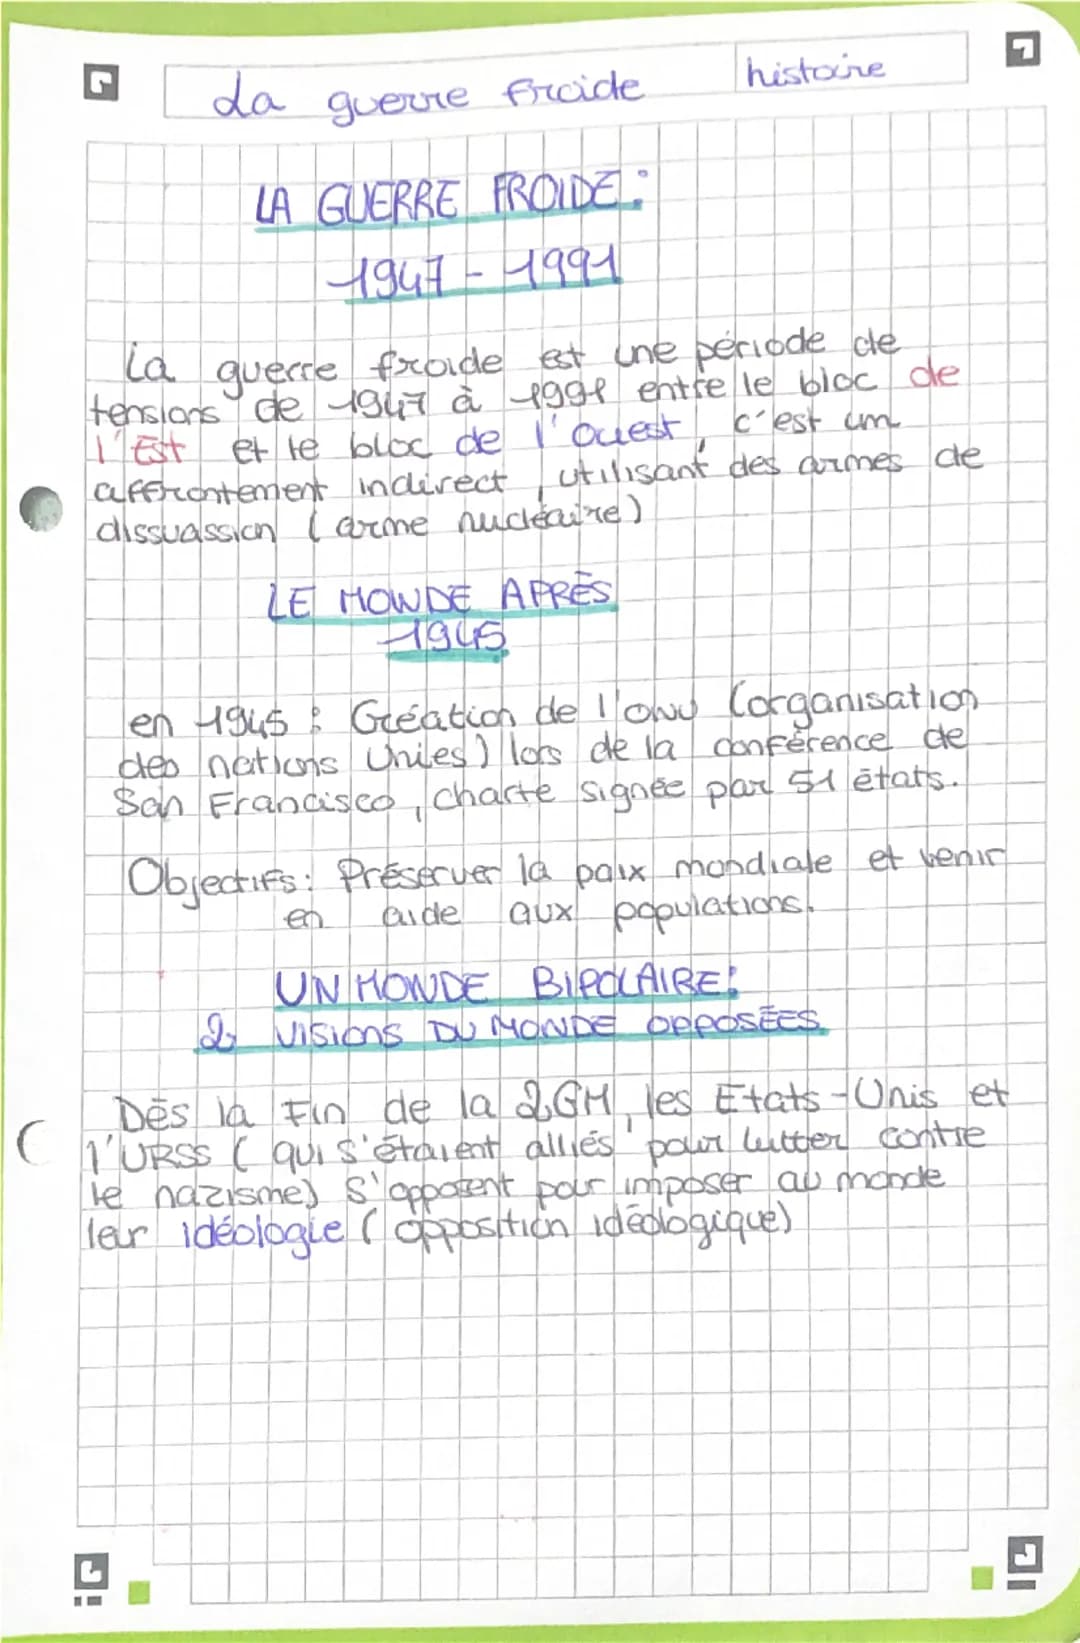 La guerre froide
histoire
LA GUERRE FROIDE :
1947 - 1991
La guerre froide est une période de
tensions de 1947 à 1991 entre le bloc de
l'Est et le bloc de l'ouest, c'est un
affrontement indirect, utilisant des armes de
dissuassion (arme nucléaire)
LE MONDE APRÈS
1945
en 1945 : Création de l'ONU (organisation
des nations Unies) lors de la conférence de
San Francisco, charte signée par 51 états.
Objectifs : Préserver la paix mondiale et venir
en aide aux populations.
UN MONDE BIPOLAIRE :
2 VISIONS DU MONDE OPPOSÉES
Dès la Fin de la 2GM, les Etats-Unis et
l'URSS (qui s'étaient alliés pour lutter contre
le nazisme) s'opposent pour imposer au monde
leur idéologie (opposition idéologique)